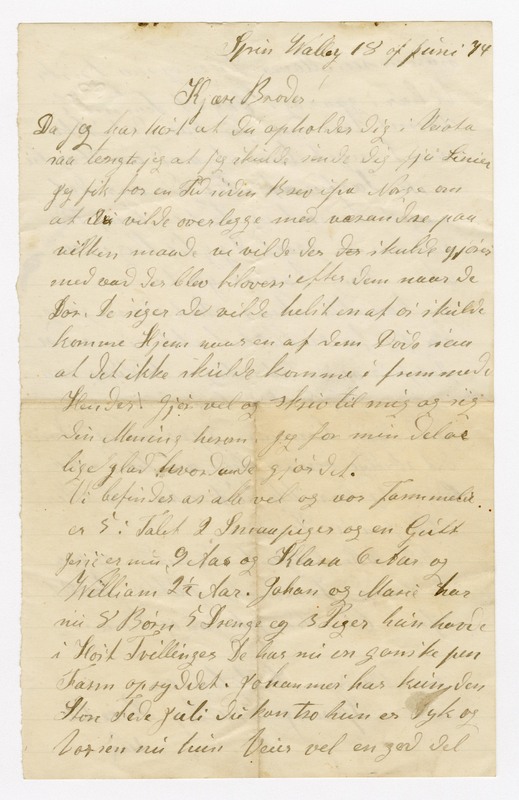 Sprin Walley 18 of Juni 74
Kjære Broder!
Da jeg har hört at Du opholder dig i
saa jeg at jeg skulde sende dig sju Linier
Jeg fik for en Tid siden Brev ifra Norge om
at Du vilde overlegge med varandre paa
vilken maade vi vilde der der skulde gjöres
med vad der blev tilovers efter dem naar de
Dör. De siger De vilde helst en af os skulde
komme Hjem naar en af dem Döde saa
at det ikke skulde komme i fremmede
Hender gjör vel og skriv til mig og sig
din Mening herom, jeg for min del æ
lige glad hvordande gjör det.
Vi befinder as alle vel og vor Fammelie
er 5 i Talet 2 Smaapiger og en Gutt
er nu 9 Aar og Klara 6 Aar og
William 2½ Aar. Johan og Marie har
nu 8 Börn 5 Drenge og 3 Piger hun havde
i Höst Tvillinger De har nu en ganske pen
Farm opryddet. Johannes har kun den
Store Fede Juli du kan tro hun er Tyk og
Voxsen nu hun Veier vel en god del